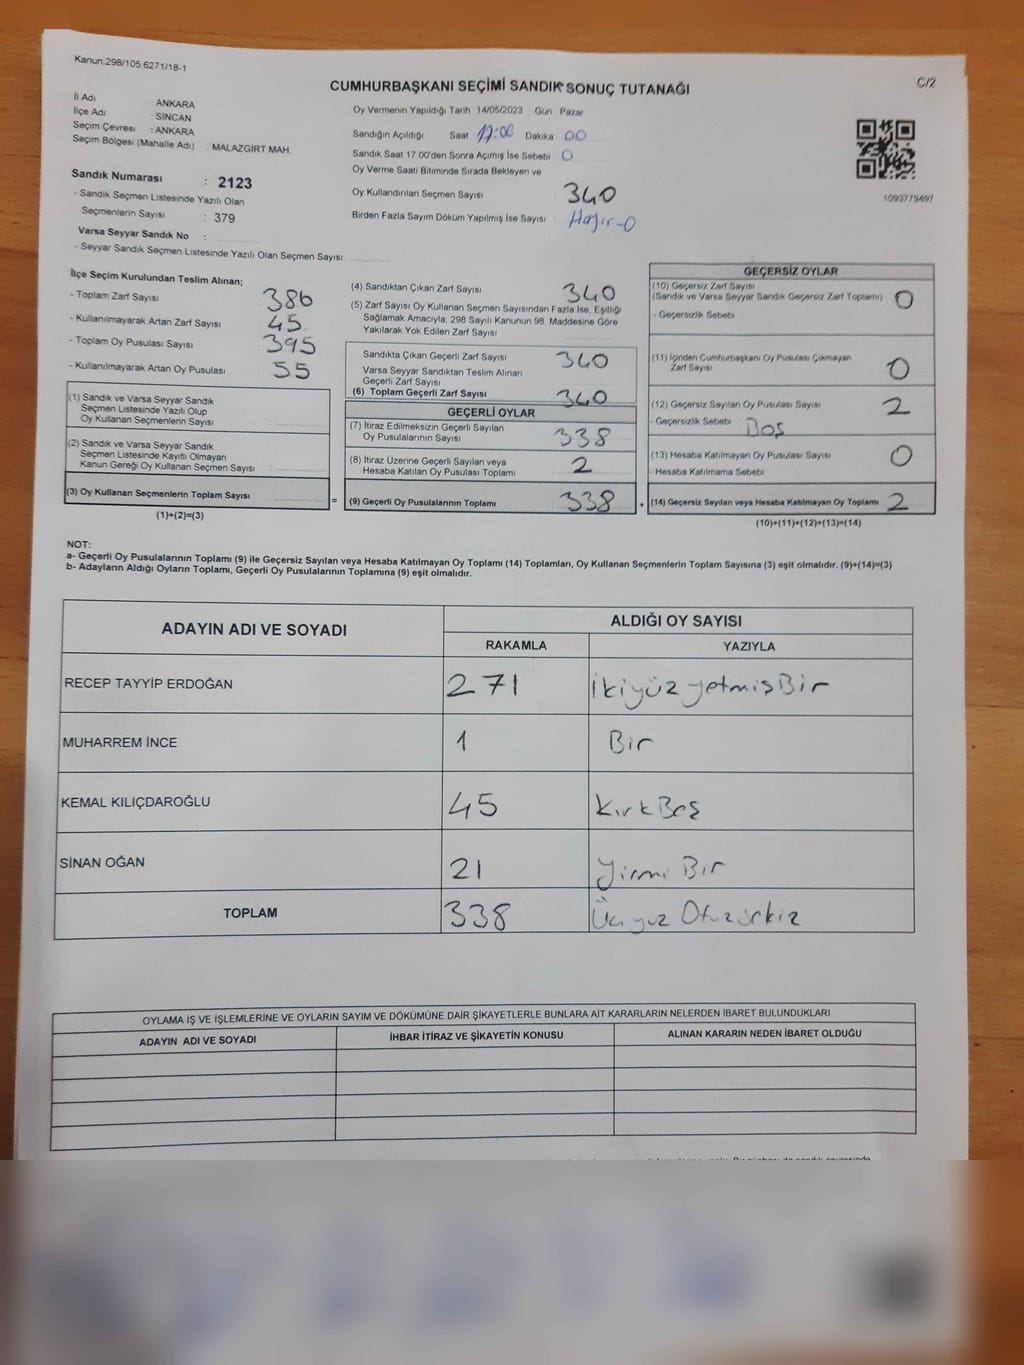 Kanun,298/105,6271/18-1
C/2
CUMHURBAŞKANI SEÇİMİ SANDIK SONUÇ TUTANAĞI
İl Adı ANKARA
İlçe Adı SİNCAN
Seçim Çevresi : ANKARA
Seçim Bölgesi (Mahalle Adı) : MALAZGİRT MAH
Sandık Numarası : 2123
- Sandık Seçmen Listesinde Yazılı Olan
Seçmenlerin Sayısı : 379
Varsa Seyyar Sandık No :
- Seyyar Sandık Seçmen Listesinde Yazılı Olan Seçmen Sayısı:
Oy Vermenin Yapıldığı Tarih 14/05/2023 Gün Pazar
Sandığın Açıldığı Saat 17:00 Dakika 00
Sandık Saat 17.00'den Sonra Açımış İse Sebebi 0
Oy Verme Saati Bitiminde Sırada Bekleyen ve
Oy Kullandırılan Seçmen Sayısı 340
Birden Fazla Sayım Döküm Yapılmış İse Sayısı : Hayır-0
1093775497
İlçe Seçim Kurulundan Teslim Alınan;
- Toplam Zarf Sayısı : 386
- Kullanılmayarak Artan Zarf Sayısı : 45
- Toplam Oy Pusulası Sayısı : 395
- Kullanılmayarak Artan Oy Pusulası : 55
(1) Sandık ve Varsa Seyyar Sandık
Seçmen Listesinde Yazılı Olup
Oy Kullanan Seçmenlerin Sayısı :
(2) Sandık ve Varsa Seyyar Sandık
Seçmen Listesinde Kayıtlı Olmayan
Kanun Gereği Oy Kullanan Seçmen Sayısı :
(3) Oy Kullanan Seçmenlerin Toplam Sayısı
(1)+(2)=(3)
(4) Sandıktan Çıkan Zarf Sayısı : 340
(5) Zarf Sayısı Oy Kullanan Seçmen Sayısından Fazla İse, Eşitliği
Sağlamak Amacıyla, 298 Sayılı Kanunun 98. Maddesine Göre
Yakılarak Yok Edilen Zarf Sayısı
Sandıkta Çıkan Geçerli Zarf Sayısı : 340
Varsa Seyyar Sandıktan Teslim Alınan
Geçerli Zarf Sayısı
(6) Toplam Geçerli Zarf Sayısı : 340
GEÇERLİ OYLAR
(7) İtiraz Edilmeksizin Geçerli Sayılan
Oy Pusulalarının Sayısı : 338
(8) İtiraz Üzerine Geçerli Sayılan veya
Hesaba Katılan Oy Pusulası Toplamı : 2
= (9) Geçerli Oy Pusulalarının Toplamı : 338
GEÇERSİZ OYLAR
(10) Geçersiz Zarf Sayısı
(Sandık ve Varsa Seyyar Sandık Geçersiz Zarf Toplamı) : 0
- Geçersizlik Sebebi
(11) İçinden Cumhurbaşkanı Oy Pusulası Çıkmayan
Zarf Sayısı 0
(12) Geçersiz Sayılan Oy Pusulası Sayısı : 2
- Geçersizlik Sebebi Boş
(13) Hesaba Katılmayan Oy Pusulası Sayısı : 0
- Hesaba Katılmama Sebebi
+ (14) Geçersiz Sayılan veya Hesaba Katılmayan Oy Toplamı : 2
(10)+(11)+(12)+(13)=(14)
NOT:
a- Geçerli Oy Pusulalarının Toplamı (9) ile Geçersiz Sayılan veya Hesaba Katılmayan Oy Toplamı (14) Toplamları, Oy Kullanan Seçmenlerin Toplam Sayısına (3) eşit olmalıdır. (9)+(14)=(3)
b- Adayların Aldığı Oyların Toplamı, Geçerli Oy Pusulalarının Toplamına (9) eşit olmalıdır.
ADAYIN ADI VE SOYADI ALDIĞI OY SAYISI
RAKAMLA YAZIYLA
RECEP TAYYİP ERDOĞAN 271 İkiyüz yetmişBir
MUHARREM İNCE 1 Bir
KEMAL KILIÇDAROĞLU 45 KırkBeş
SİNAN OĞAN 21 Yirmi Bir
TOPLAM 338
OYLAMA İŞ VE İŞLEMLERİNE VE OYLARIN SAYIM VE DÖKÜMÜNE DAİR ŞİKAYETLERLE BUNLARA AİT KARARLARIN NELERDEN İBARET BULUNDUKLARI
ADAYIN ADI VE SOYADI İHBAR İTİRAZ VE ŞİKAYETİN KONUSU ALINAN KARARIN NEDEN İBARET OLDUĞU